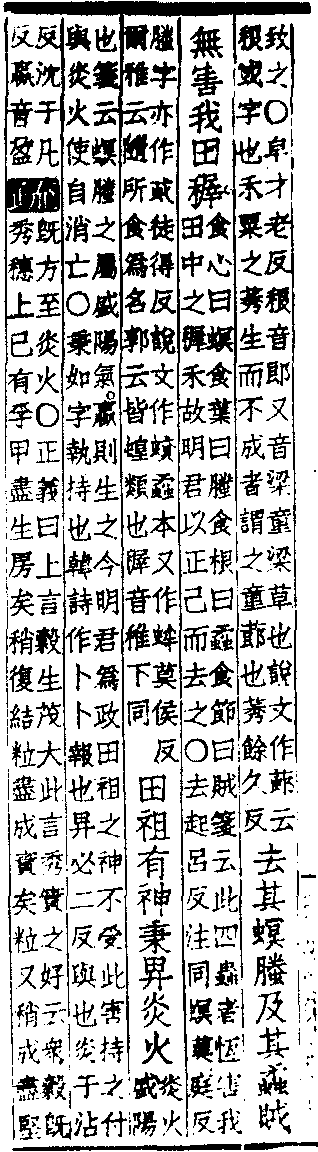 致之〇皁才老反稂音郎又音梁童梁草也說文作蓈云
稂或字也禾粟之莠生而不成者謂之童蓈也莠餘久反
去其螟螣及其蟊賊
無害我田穉
食心曰螟食葉曰螣食根曰蟊食節曰賊箋云此四蟲者恆害我
田中之穉禾故明君以正己而去之〇去起呂反注同螟莫庭反
螣字亦作䘌徒得反說文作蟘蟊本又作蛑莫侯反
爾雅云隨所食爲名郭云皆蝗類也穉音稚下同
田祖有神秉畀炎火
炎火
盛陽
也箋云螟螣之屬盛陽氣嬴則生之今明君爲政田祖之神不受此害持之付
與炎火使自消亡〇秉如字執持也韓詩作卜卜報也畀必二反與也炎于沾
反沈于凡
反嬴音盈
既方至炎火〇正義曰上言穀生茂大此言秀實之好云衆穀既
秀穗上已有孚甲盡生房矣稍復結粒盡成實矣粒又稍成盡堅